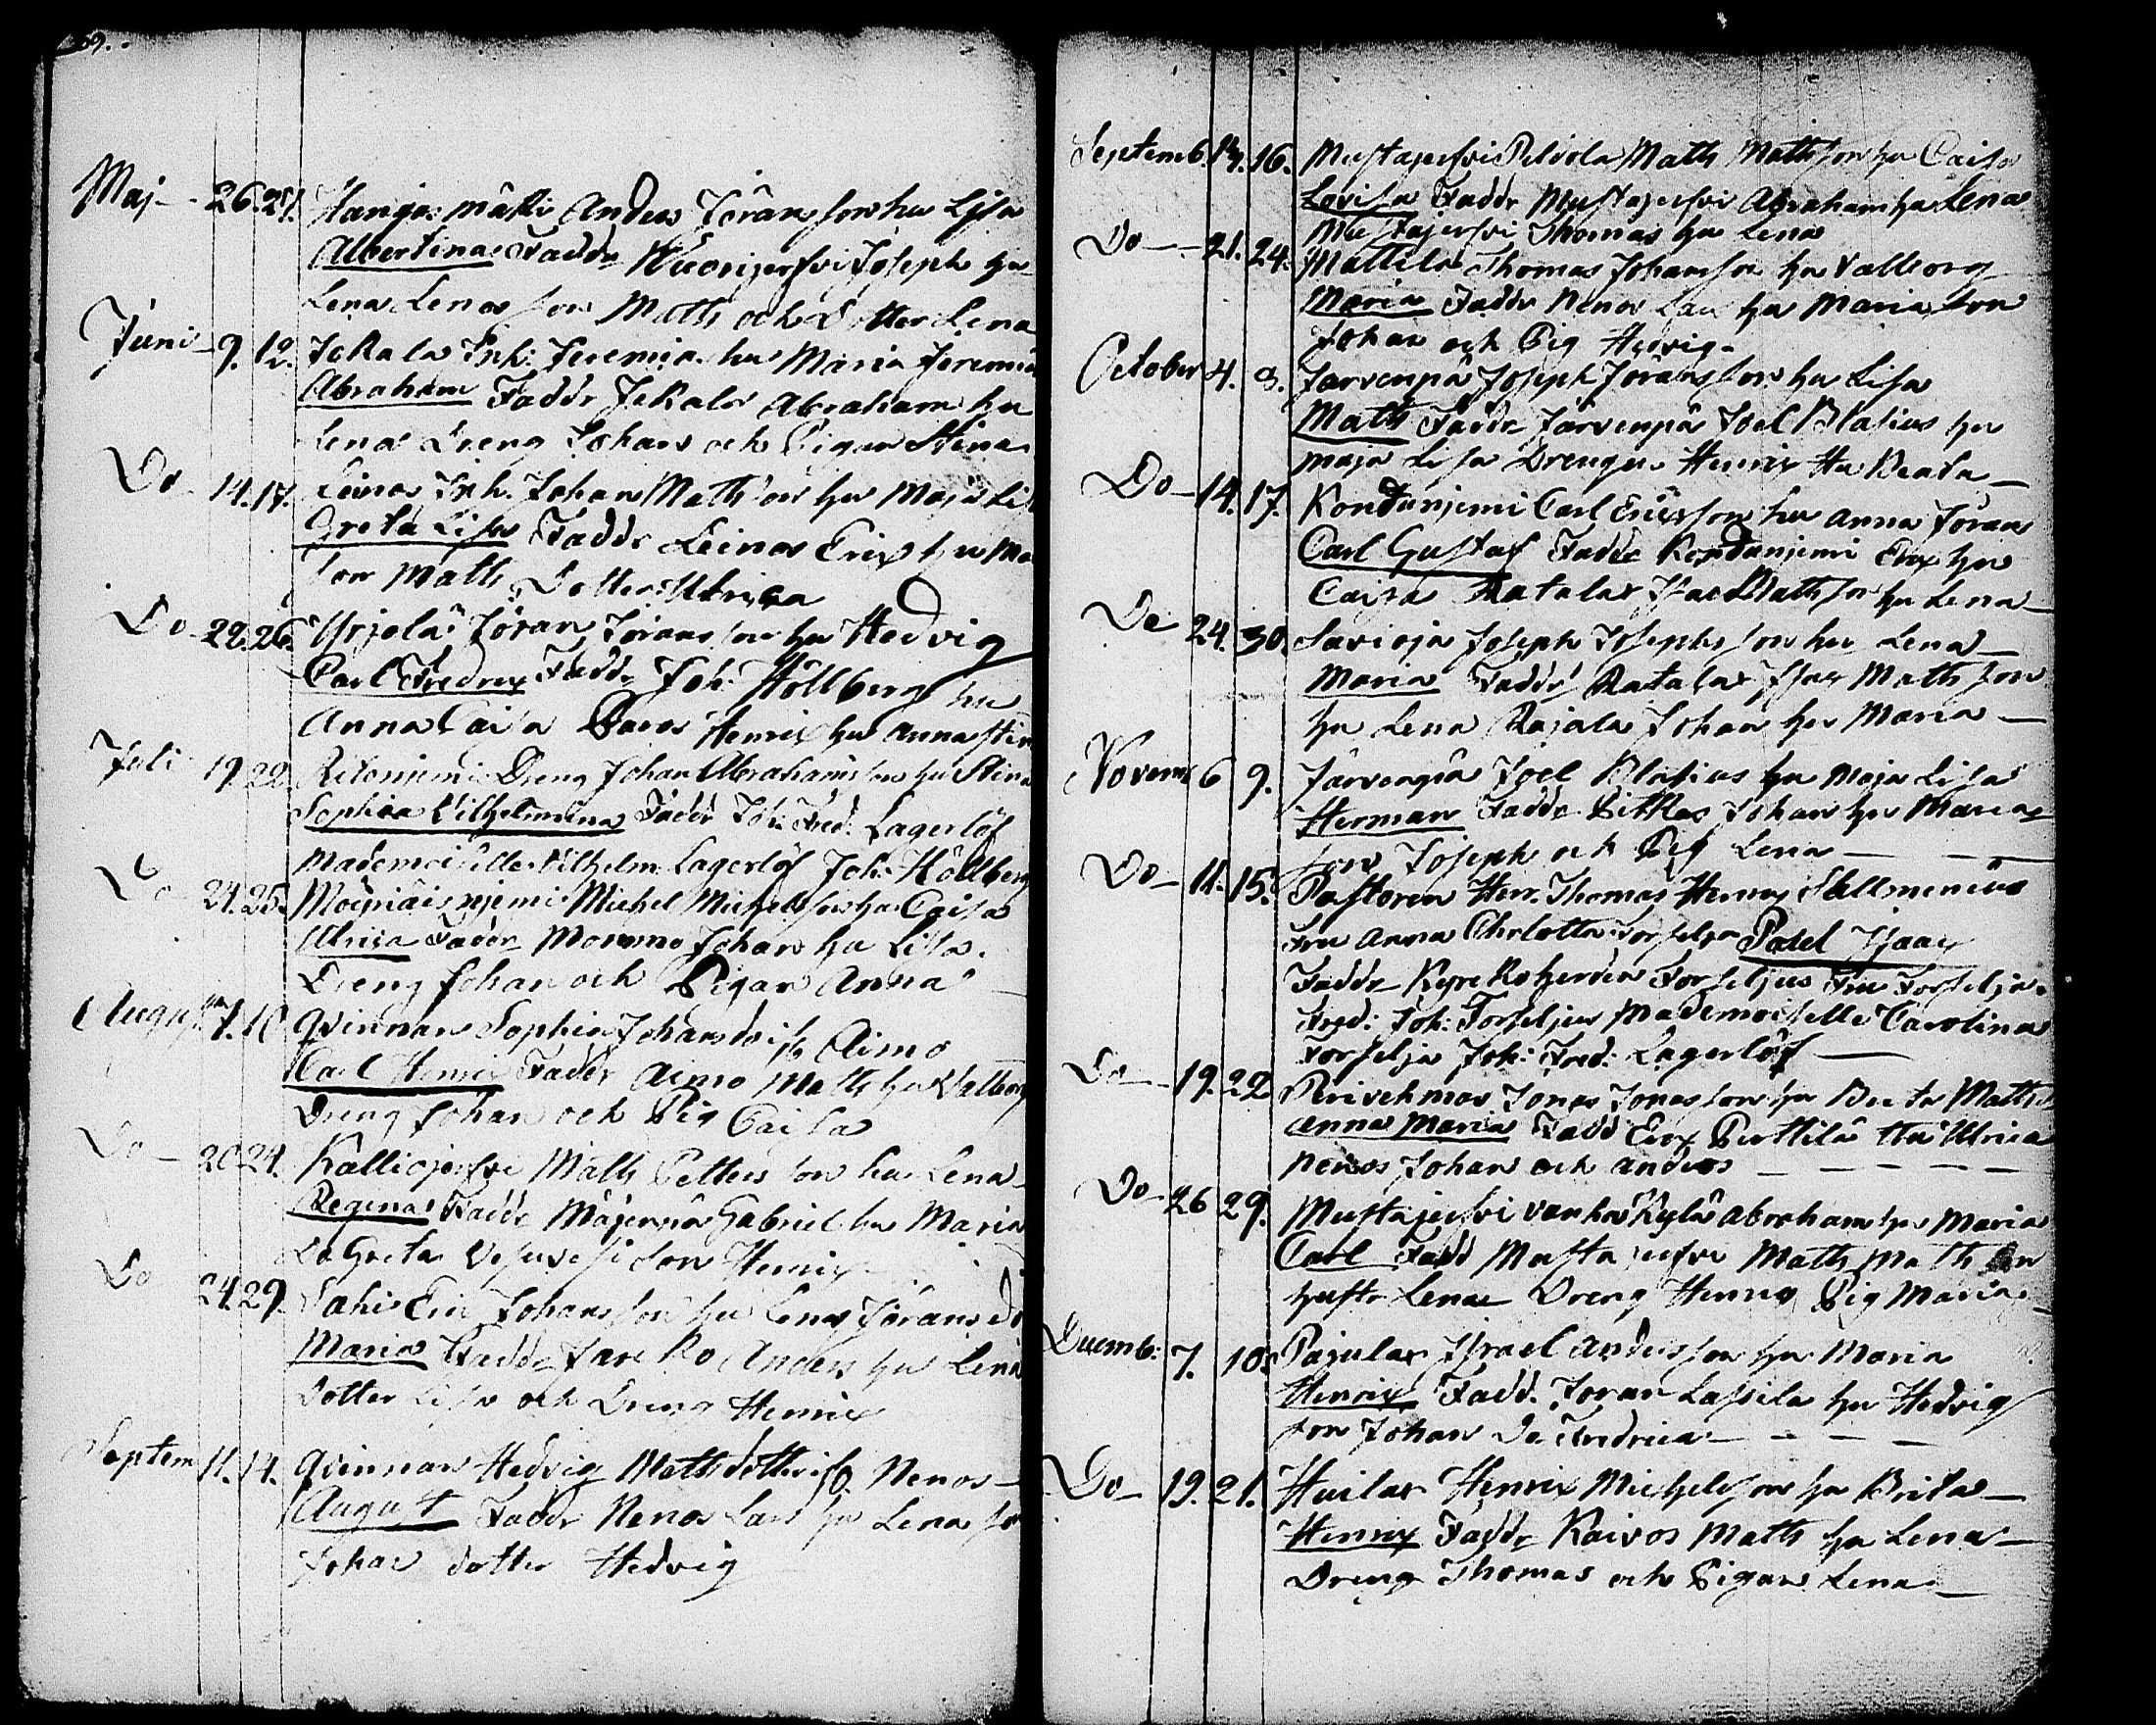 Maj - 26. 27. Kangas mâkki Anders Jöransson hu Lisa
Albertina Faddr Wuorijerfvi Joseph hu
Lena Lenos son Matts och Dotter Lena
Juni - 9. 12. Jokala Inh: Jeremia hu Maria Jeremia
Abraham Faddr Jokala Abraham hu
Lena Dreng Johan och Pigan Stina
Do 14. 17. Leinos Inh. Johan Mathsson hu Maja Lis
Greta Lisa Faddr Leinos Erix hu Ma
son Matts, Dotter Ulrica
Do - 22. 26. Yrjölä Jöran Jöransson hu Hedvig
Carl Fredrix Faddr Joh: Höllberg hu
Anna Caisa Paros Henrix hu Anna Stin
Juli 19. 22. Dreng Johan Abrahamsson hu Stina
Sophia Vilhelmina Faddr Joh: Fred: Lagerlöf
Mademoiselle Vilhelm: Lagerlöf Joh: Höllberg
Do 24. 25. Michel Michelsson hu Caisa
Ulrica Faddr Mommo Johan hu Lisa.
Dreng Johan och Pigan Anna
August 7. 10 Qvinnan Sophia Johansdr ifr Aimo
Carl Henric Faddr Aimo Matts hu Valborg
Dreng Johan och Pig Caisa
Do - 20. 24. Kalliojerfvi Matts Petters son hu Lena
Regina Faddr Mäjernä Gabriel hu Maria
Do Greta son Henrix
Do 24. 29. Lahis Eric Johansson hu Lena Jörans dr
Maria Faddr Jareko Anders hu Lena
Dotter Lisa och Dreng Henrix
Septem 11. 14. Qvinnan Hedvig Mattsdotter ifr. Nenos -
August Faddr Nenos Lars hu Lena so
Johan dotter Hedvig
Septemb. 14. 16. Mustajerfvi Peldola Matts Mattsson hu Caisa
Lovisa Faddr Mustajerfvi Abraham hu Lena
Mustajerfvi Thomas hu Lena
Do - - 21. 24. Mattila Thomas Johansson hu Valborg
Maria Faddr Nenos Lars hu Maria son
Johan och Pig Hedvig -
October 4. 8. Jarvenpä Joseph Jöransson hu Lisa
Matts Faddr Järvenpä Joel Blasius hu
Maja Lisa Drengen Henrix Hu Beata -
Do - 14. 17. Kondunjemi Carl Ericsson hu Anna Jörans
Carl Gustaf Faddr Kondunjemi Erix hu
Caisa Ratala Isac Mattsson hu Lena -
Do 24. 30. Savioja Joseph Josephsson hu Lena -
Maria Faddr Ratala Isac Mattsson
hu Lena Rajala Johan hu Maria -
Novemb 6 9. Järvenpä Joel Blasius hu Maja Lisa
Herman Faddr Pitkos Johan hu Maria
son Joseph och Pig Lena -
Do - 11. 15. Pastoren Herr. Thomas Henrix
Fru Anna Chrlotta Forselja Paul Isaac
Faddr Kyrkoherden Forseljus Fru Forselja
Fred: Joh: Forseljus Mademoiselle Carolina
Forselja Joh: Fred: Lagerlöf -
Do - 19. 22 Jonas Jonasson hu Beata Matts
Anna Maria Fadd Erix Perttilä Hu Ulrica
Nenos Johan och Anders - - - -
Do - 26 29. Mustajerfvi vanha Kylä Abraham hu Maria
Carl Fadd Mustajerfvi Matts Mattsson
hustr Lena Dreng Henrix Pig Maria -
Decemb: 7. 10. Pajula Israel Andersson hu Maria
Henrix Fadd. Joran Lassila hu Hedvig
son Johan Do Fredrica - - - -
Do - 19. 21. Huila Henrix Michelsson hu Brita -
Henrix Faddr Kaivos Matts hu Lena -
Dreng Thomas och Pigan Lena -